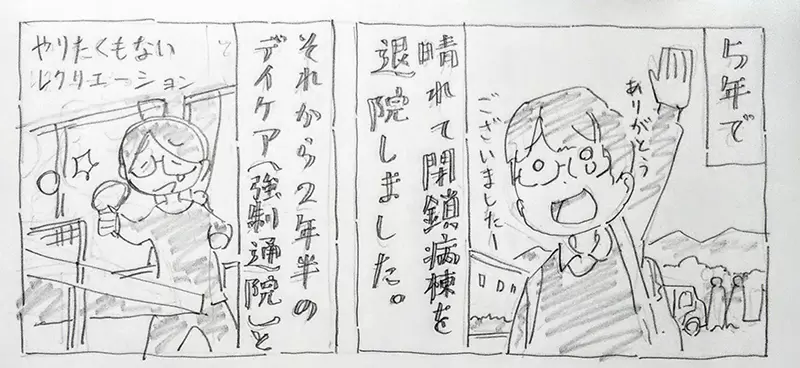 5年で
ありがとう
ございましたー
晴れて閉鎖病棟を
退院しました。
それから2年半の
デイケア(強制通院)と
やりたくもない
レクリエーション